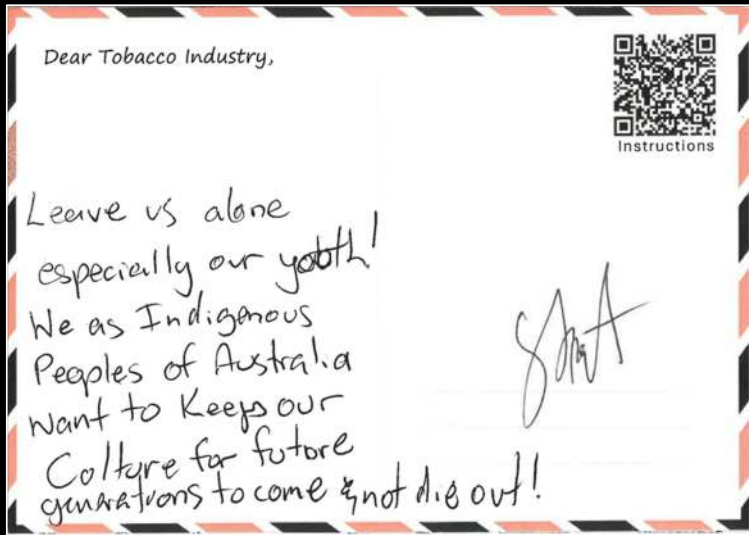 Dear Tobacco Industry,
Instructions
Leave us alone
especially our youth!
We as Indigenous
Peoples of Australia
want to Keeps our
Culture for future
generations to come & not die out!